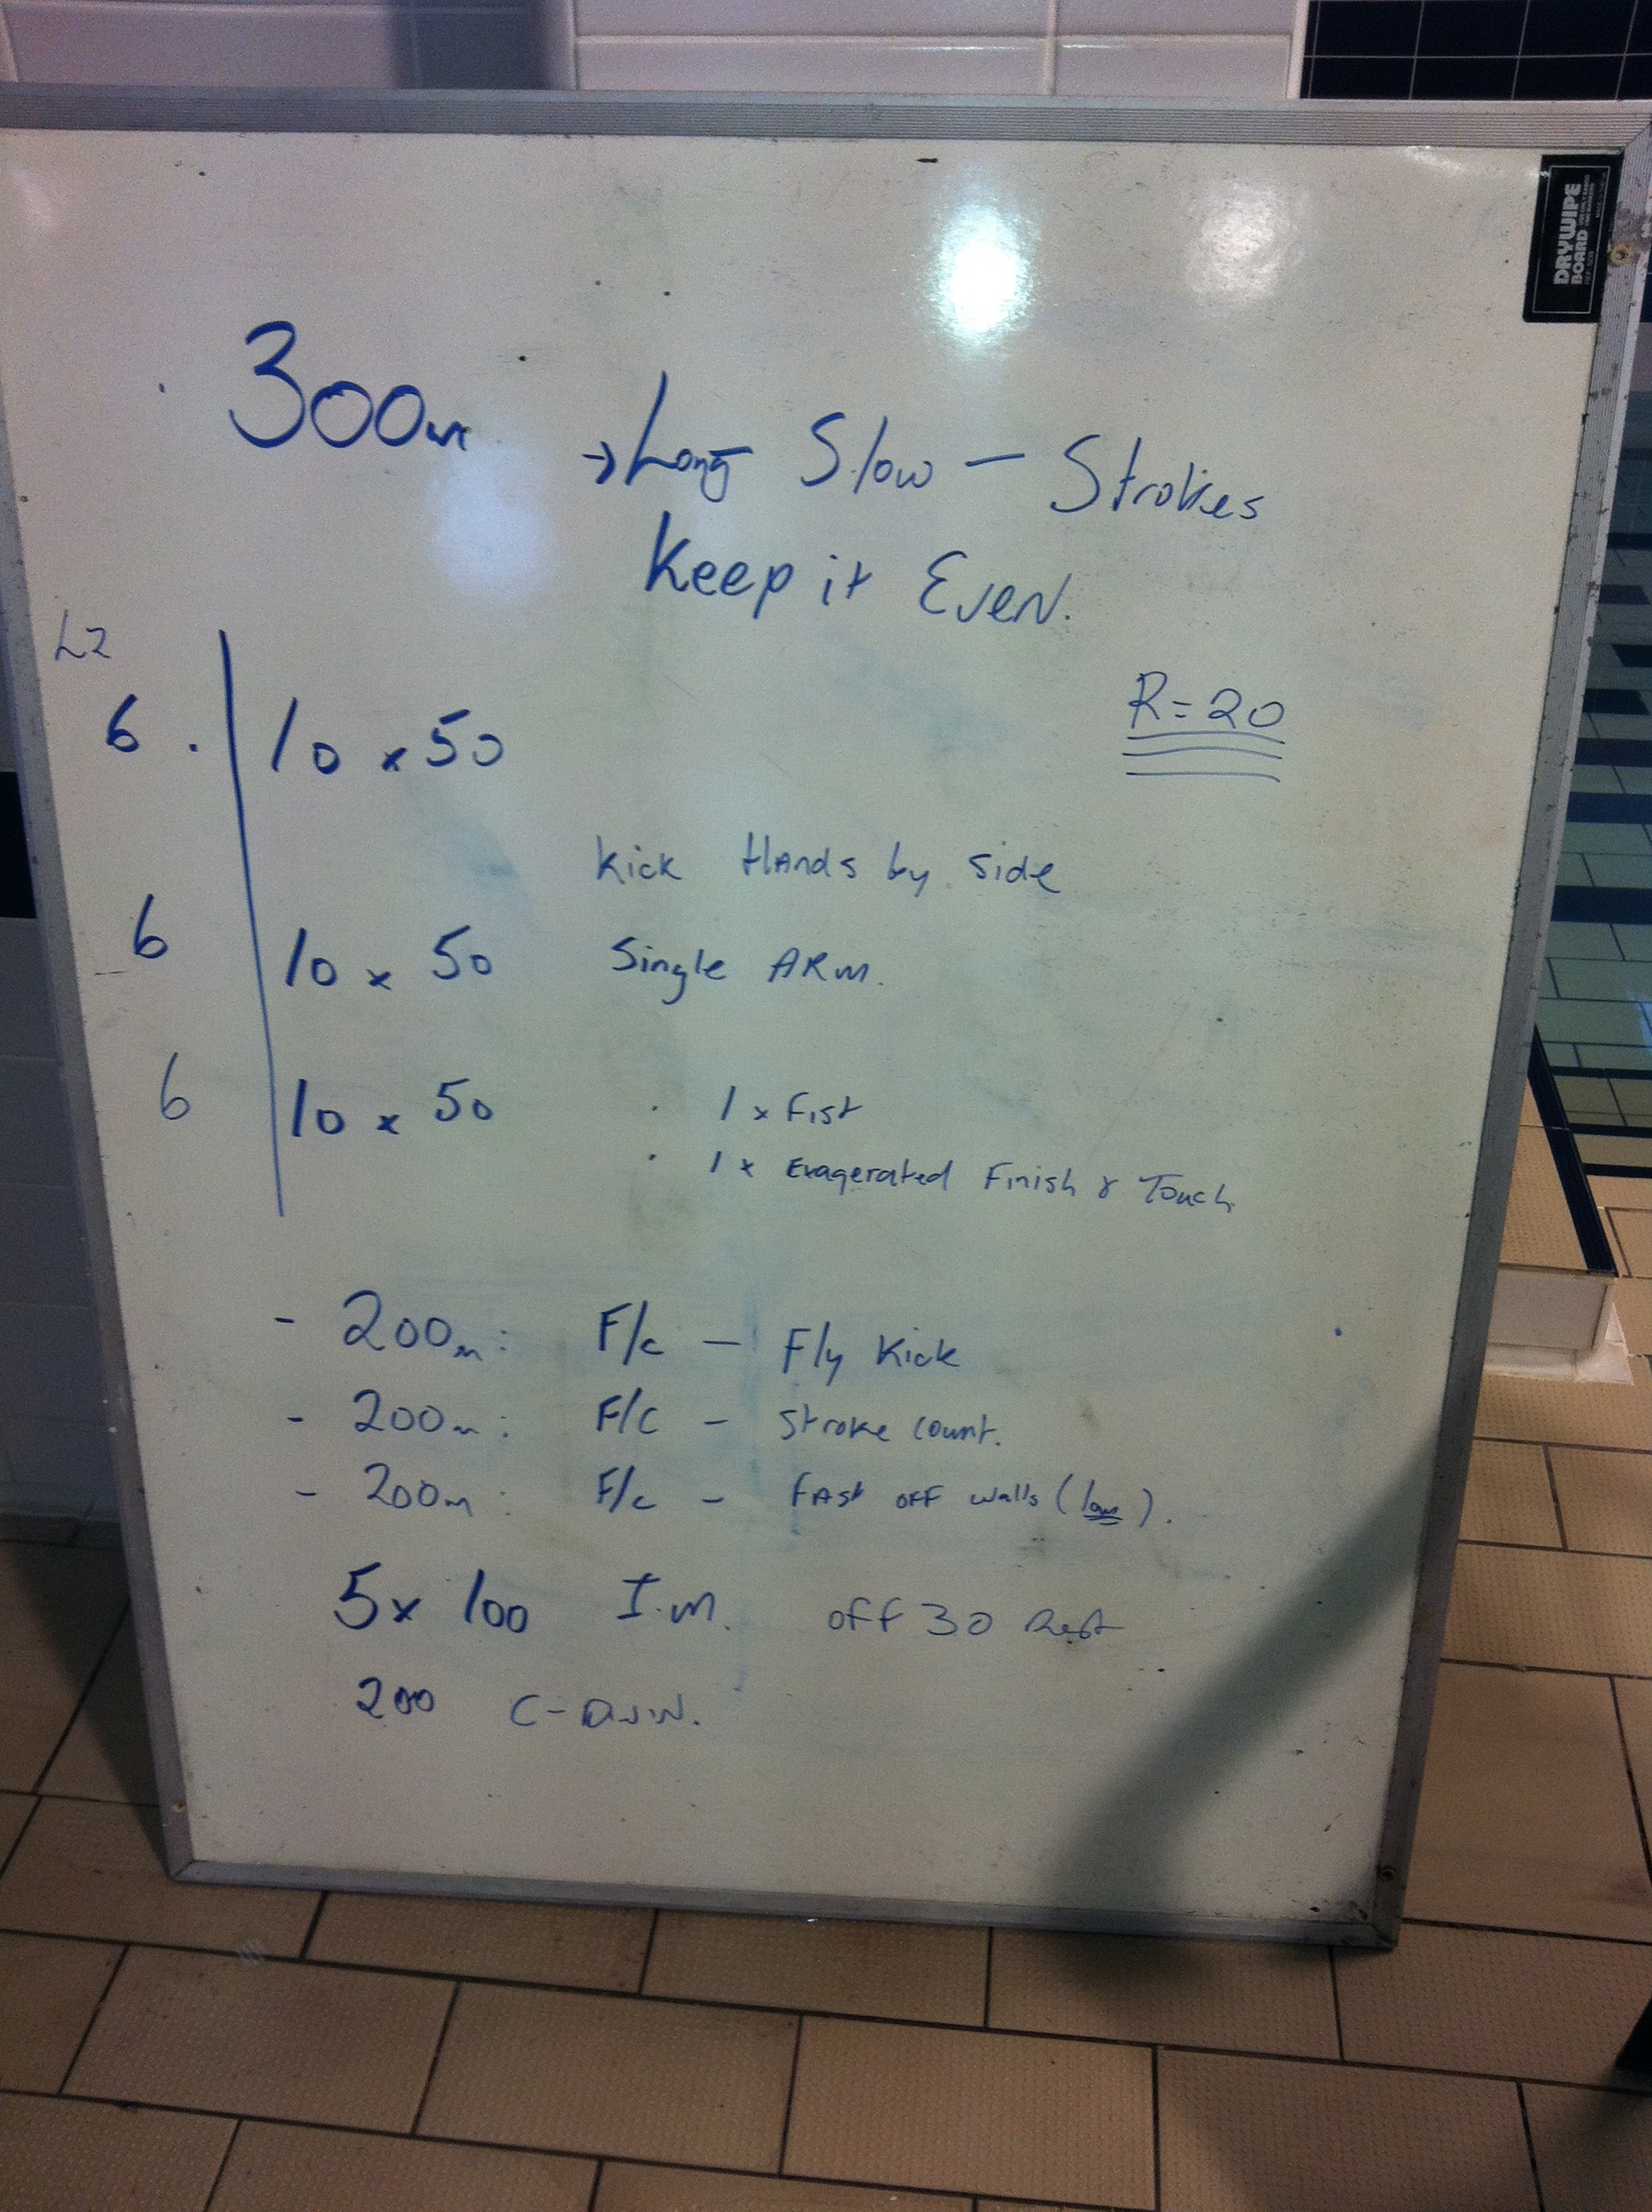 DRYWIPE
BOARD
300m → Long Slow - Strokes
Keep it Even.
L2
R=20
6 . 10 x 50
Kick Hands by side
6 10 x 50 Single ARm.
6 10 x 50 . 1 x Fist
. 1 x Exagerated Finish & Touch
- 200m: F/c - Fly Kick
- 200m: F/C - Stroke count.
- 200m: F/c - fast off walls ( ).
5x 100 I.m. off 30 Rest
200 C-Down.